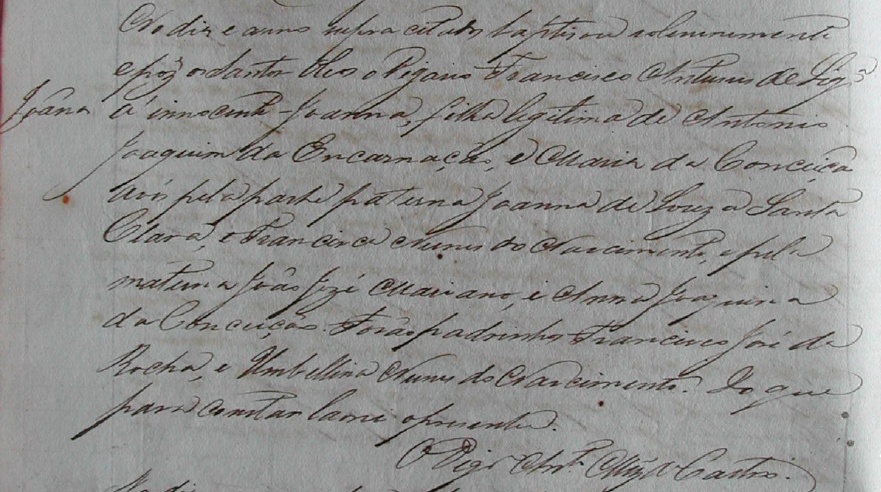 No dia e anno supra citado baptisou solemnemente
e poz os Santos Oleos o Vigario Francisco Antunes de Siq.ª
Joana
á innocente Joanna, filha legitima de Antonio
Joaquim da Encarnação, e Maria da Conceição
Avós pela parte paterna Joanna de Souza Santa
Clara, e Francisco Nunes do Nascimento, e pela
materna João Jozé Mariano, e Anna Joaquina
da Conceiçaõ. Foraõ padrinhos Francisco José da
Rocha, e Umbellina Nunes do Nascimento. Do que
para constar lavrei o presente.
O Vigr.º Ant.º Castro.